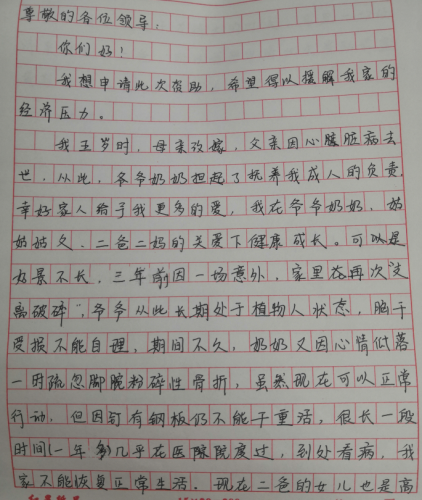 尊敬的各位领导:
你们好!
我想申请此次资助,希望得以援解我家的
经济压力。
我五岁时,母亲改嫁,父亲因心臟脏病去
世.从此,爷爷奶奶担起了抚养我成人的负责.
幸好家人给于我更多的爱,我在爷爷奶奶.姑
姑姑父.二爸二妈的关爱下健康成长。可以是
好景不长.三年前因一场意外,家里在再次"支
离破碎",爷爷从此长期处于植物人状态,脑干
受损不能自理.期间不久,奶奶又因心情低落
一时疏忽脚腕粉碎性骨折,虽然现在可以正常
行动.但因钉有钢板仍不能干重活,很长一段
时间(一年多)几乎在医院度过,到处看病,我
家不能恢复正常生活.现在二爸的女儿也是高